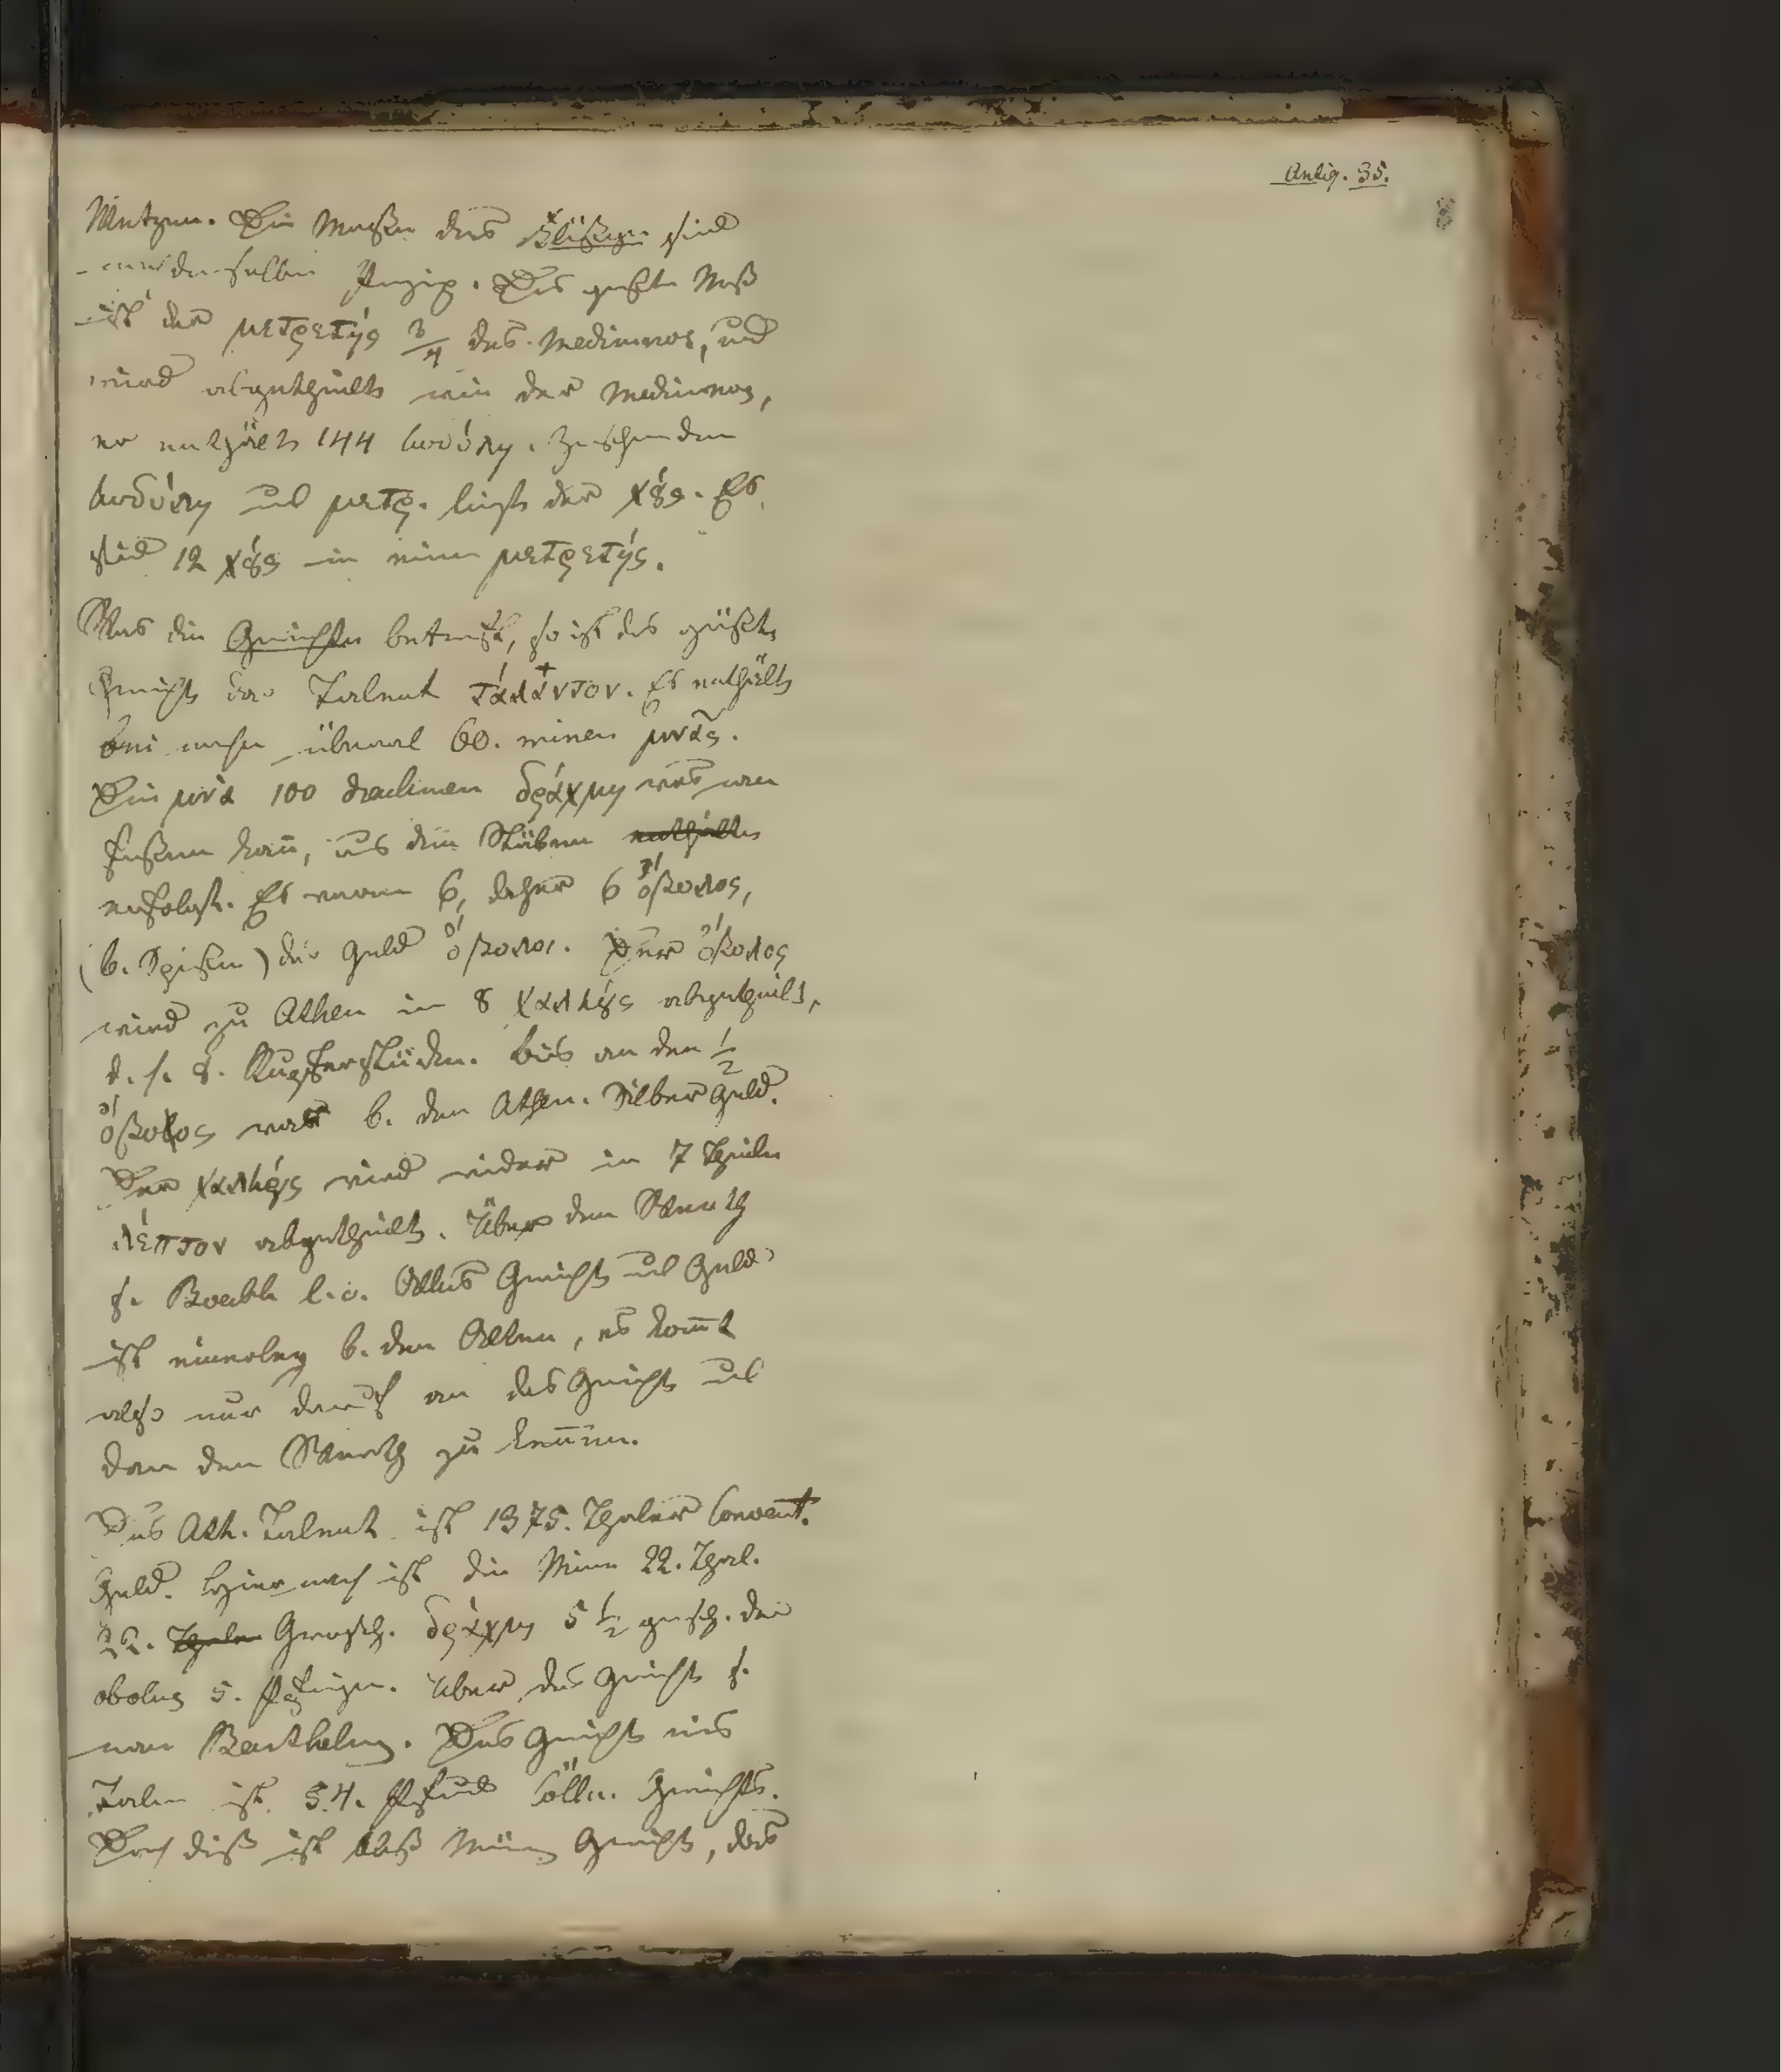 Antiq. 35.
Metzen. Die Maaße des Flüßigen sind
nach demselben Prinzip. Das größte Maß
ist der μετρετής 3/4 des Medimnos, und
wird abgetheilt wie der Medimnos,
er enthält 144 κοτύλη. Zwischen den
κοτύλη und μετρ. liegt der χȣ́ς. Es
sind 12 χȣ́ς in einem μετρετής.
Was die Gewichte betrift, so ist das größte
Gewicht das Talent τάλάντον. Es enthält
überal 60. minen μνᾶς.
Die μνᾶ 100 drachmen δράχμη was man
faßen kann, aus den Stäben enthält
erfolgt. Es waren 6, daher 6 ὄβολος,
(b. Spießen) das Geld ὄβολοι. Der ὄβολος
wird zu Athen in 8 χαλκȣ́ς abgetheilt,
d. h. 8. Kupferstücken. bis an den 1/2
ὄβολος war b. den Athen. Silber Geld.
Der χαλκȣ́ς wird wieder in 7 Theile
λέπτον abgetheilt. Über den Werth
s. Boeckh l. c. Alles Gewicht und Geld
ist einerley b. den Alten, es kom̄t
also nur darauf an das Gewicht und
dan den Werth zu kennen.
Das Ath. Talent ist 1375. Thaler Convent.
Geld. Hiernach ist die Mine 22. Thal.
22. Thaler Grosch. δράχμη 5 1/2 grosch. der
obolus 5. Pfeninge. Über das Gewicht s.
man Barthelmy. Das Gewicht eines
Talen ist 54. Pfund Cölln. Gewichts.
Doch diß ist bloß Münz Gewicht, das